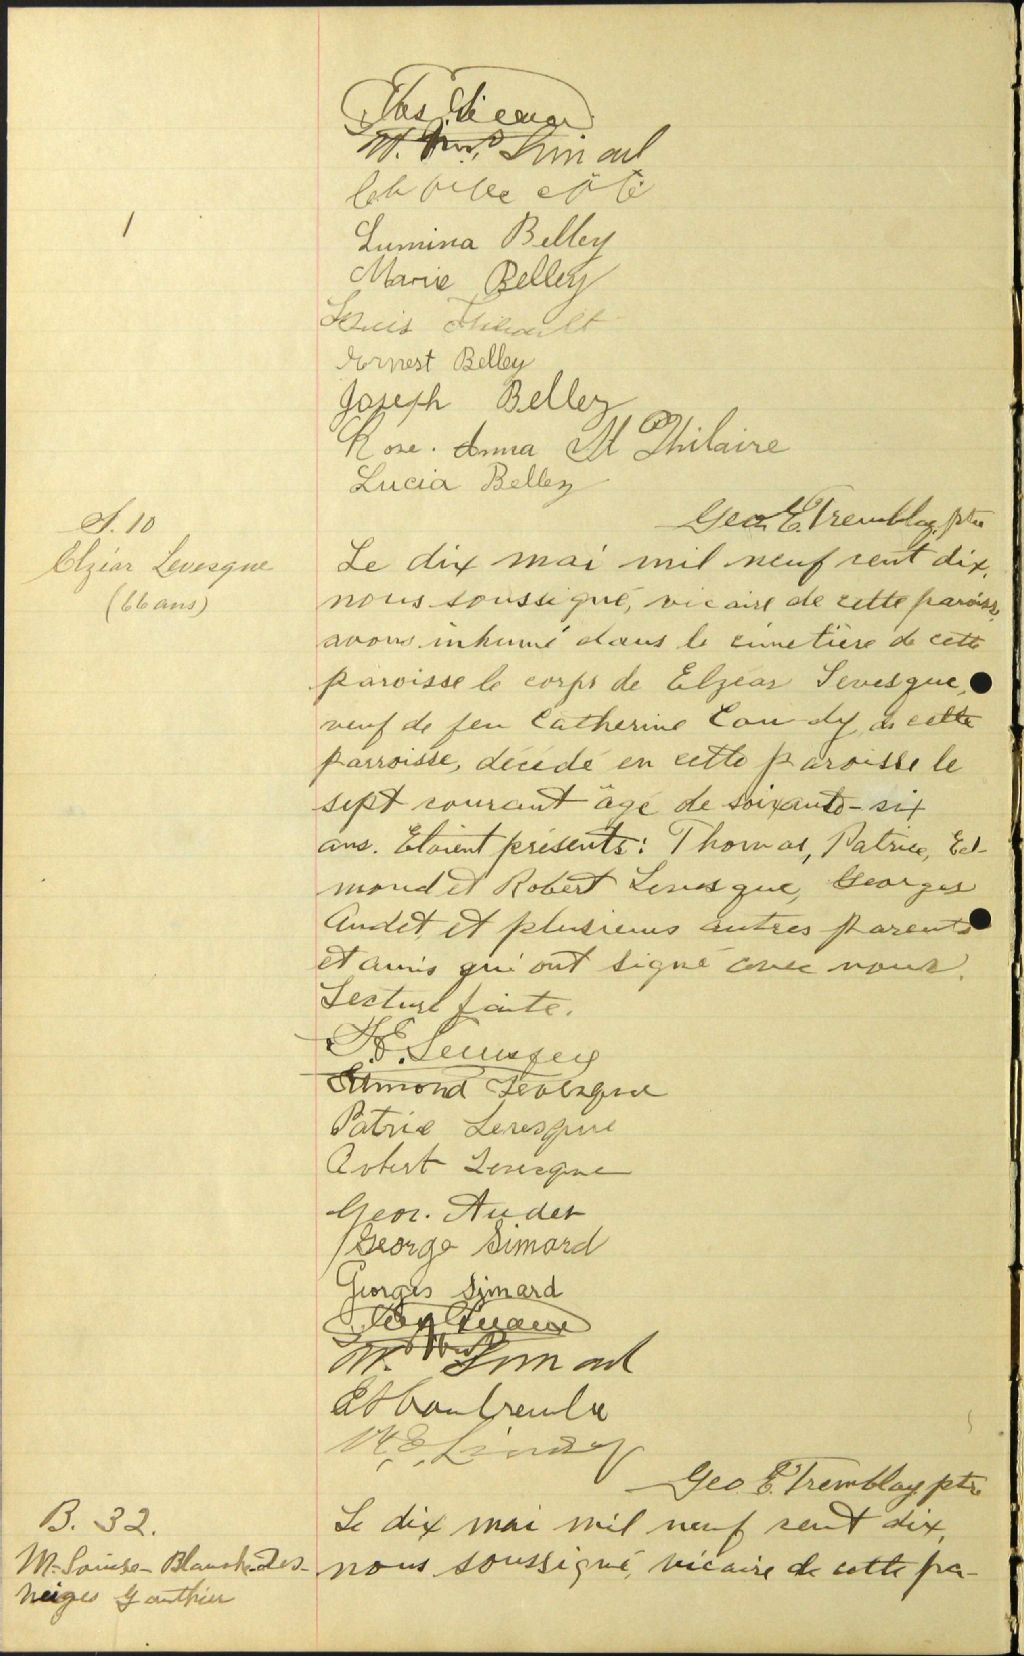 Simard
côté
Lumina Belley
Marie Belley
Louis Thibault
Ernest Belley
Joseph Belley
Rose. Anna St Hilaire
Lucia Belley
Geo. E. Tremblay ptre
S. 10
Elzéar Levesque
(66 ans)
Le dix mai mil neuf cent dix,
nous soussigné, vicaire de cette paroisse,
avons inhumé dans le cimetière de cette
paroisse le corps de Elzéar Levesque,
veuf de feu Catherine de cette
parroisse, décédé en cette paroisse le
sept courant âgé de soixante-six
ans. Etaient présents: Thomas, Patrice, Ed-
mond et Robert Levesque, Georges
Audet et plusieurs autres parents
et amis qui ont signé avec nous.
Lecture faite.
Edmond Levesque
Patrice Levesque
Robert Levesque
Geor. Audet
George Simard
Georges Simard
Simard
Geo. E. Tremblay ptre
B. 32.
M-Louise-Blanche-des-
neiges Gauthier
Le dix mai mil neuf cent dix,
nous soussigné, vicaire de cette pa-